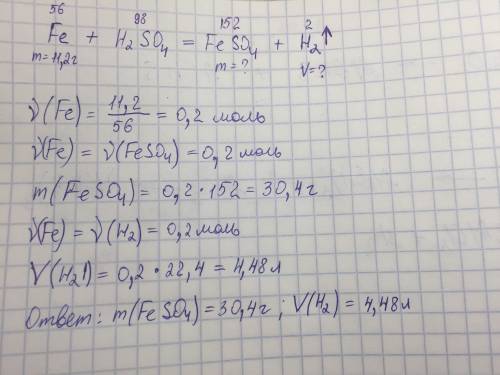 56 98 152 2
Fe + H₂SO₄ = FeSO₄ + H₂↑
m=11,2г m=? V=?
ν(Fe) = 11,2/56 = 0,2 моль
ν(Fe) = ν(FeSO₄) = 0,2 моль
m(FeSO₄) = 0,2·152 = 30,4 г
ν(Fe) = ν(H₂) = 0,2 моль
V(H₂) = 0,2·22,4 = 4,48 л
Ответ: m(FeSO₄) = 30,4 г; V(H₂) = 4,48 л